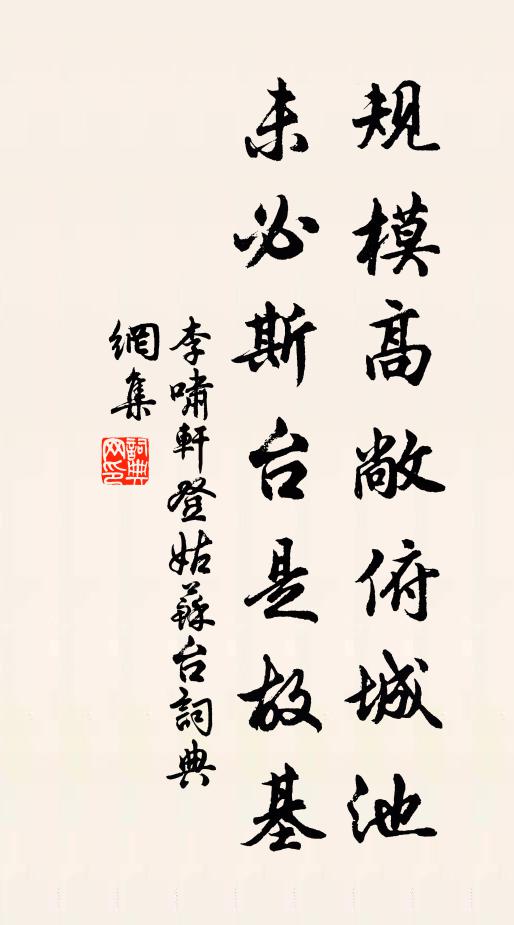 規模高敞俯城池
未必斯台是故基
李嘯軒登姑蘇台詞典
網集
詞典
网印